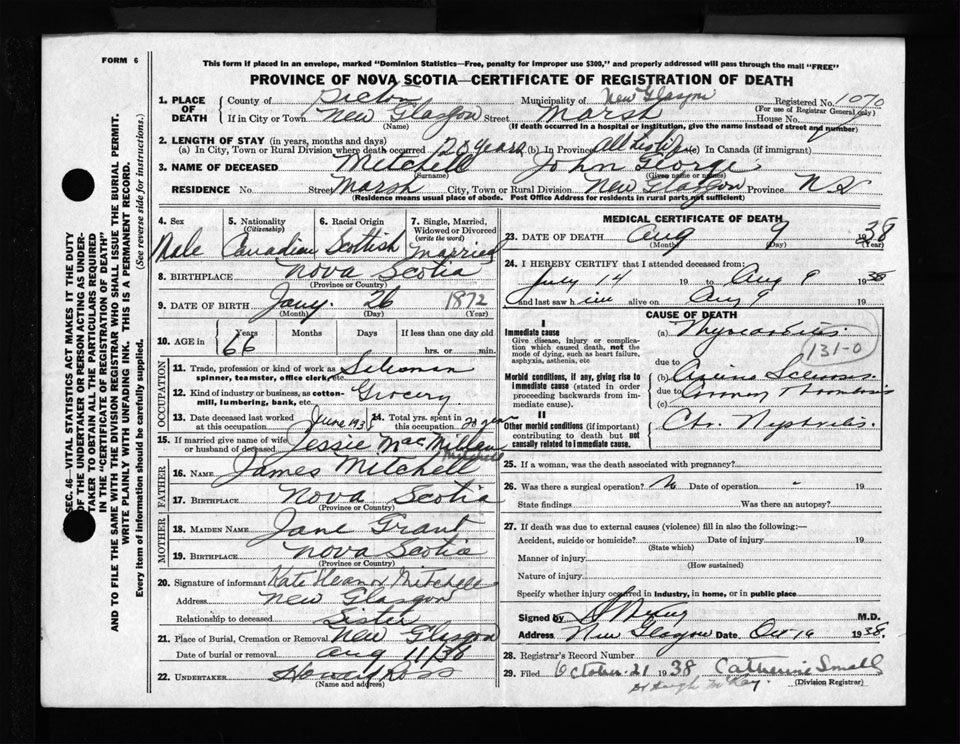 FORM 6
This form if placed in an envelope, marked "Dominion Statistics—Free, penalty for improper use $300," and properly addressed will pass through the mail "FREE"
PROVINCE OF NOVA SCOTIA—CERTIFICATE OF REGISTRATION OF DEATH
1. PLACE OF DEATH
County of Pictou Municipality of New Glasgow Registered No. 1070
(For use of Registrar General only)
If in City or Town New Glasgow Street Marsh House No.
(Name) (If death occurred in a hospital or institution, give the name instead of street and number)
2. LENGTH OF STAY (in years, months and days)
(a) In City, Town or Rural Division where death occurred 20 years (b) In Province All his life (c) In Canada (if immigrant)
3. NAME OF DECEASED Mitchell John George
(Surname) (Given name or names)
RESIDENCE No. Street Marsh City, Town or Rural Division New Glasgow Province N S
(Residence means usual place of abode. Post Office Address for residents in rural parts not sufficient)
4. Sex Male
5. Nationality (Citizenship) Canadian
6. Racial Origin Scottish
7. Single, Married, Widowed or Divorced (write the word) Married
8. BIRTHPLACE Nova Scotia
(Province or Country)
9. DATE OF BIRTH Jany. 26 1872
(Month) (Day) (Year)
10. AGE in Years Months Days If less than one day old
66 hrs. or min.
OCCUPATION
11. Trade, profession or kind of work as spinner, teamster, office clerk, etc. Salesman
12. Kind of industry or business, as cotton-mill, lumbering, bank, etc. Grocery
13. Date deceased last worked at this occupation June 1938
14. Total yrs. spent in this occupation 20 years
15. If married give name of wife or husband of deceased Jessie MacMillan Mitchell
FATHER
16. NAME James Mitchell
17. BIRTHPLACE Nova Scotia
(Province or Country)
MOTHER
18. MAIDEN NAME Jane Grant
19. BIRTHPLACE Nova Scotia
(Province or Country)
20. Signature of informant Kate Eleanor Mitchell
Address New Glasgow
Relationship to deceased Sister
21. Place of Burial, Cremation or Removal New Glasgow
Date of burial or removal Aug 11/38
22. UNDERTAKER Howard Ross
(Name and address)
MEDICAL CERTIFICATE OF DEATH
23. DATE OF DEATH Aug 9 1938
(Month) (Day) (Year)
24. I HEREBY CERTIFY that I attended deceased from:
July 14 19 to Aug 9 1938
and last saw him alive on Aug 9 19
CAUSE OF DEATH
I
Immediate cause (a) Myocarditis
Give disease, injury or complication which caused death, not the mode of dying, such as heart failure, asphyxia, asthenia, etc
131-0
due to
Morbid conditions, if any, giving rise to immediate cause (stated in order proceeding backwards from immediate cause). (b) Sclerosis
due to Thrombosis
(c)
II
Other morbid conditions (if important) contributing to death but not causally related to immediate cause. Chr. Nephritis
25. If a woman, was the death associated with pregnancy?
26. Was there a surgical operation? No Date of operation 19
State findings Was there an autopsy?
27. If death was due to external causes (violence) fill in also the following:—
Accident, suicide or homicide? Date of injury 19
(State which)
Manner of injury
(How sustained)
Nature of injury
Specify whether injury occurred in industry, in home, or in public place
Signed by M.D.
Address New Glasgow Date Oct 19 1938
28. Registrar's Record Number
29. Filed October 21 1938 Catherine Small
(Division Registrar)
SEC. 46—VITAL STATISTICS ACT MAKES IT THE DUTY
OF THE UNDERTAKER OR PERSON ACTING AS UNDER-
TAKER TO OBTAIN ALL THE PARTICULARS REQUIRED
IN THE "CERTIFICATE OF REGISTRATION OF DEATH"
AND TO FILE THE SAME WITH THE DIVISION REGISTRAR WHO SHALL ISSUE THE BURIAL PERMIT.
WRITE PLAINLY WITH UNFADING INK. THIS IS A PERMANENT RECORD.
Every item of information should be carefully supplied. (See reverse side for instructions.)